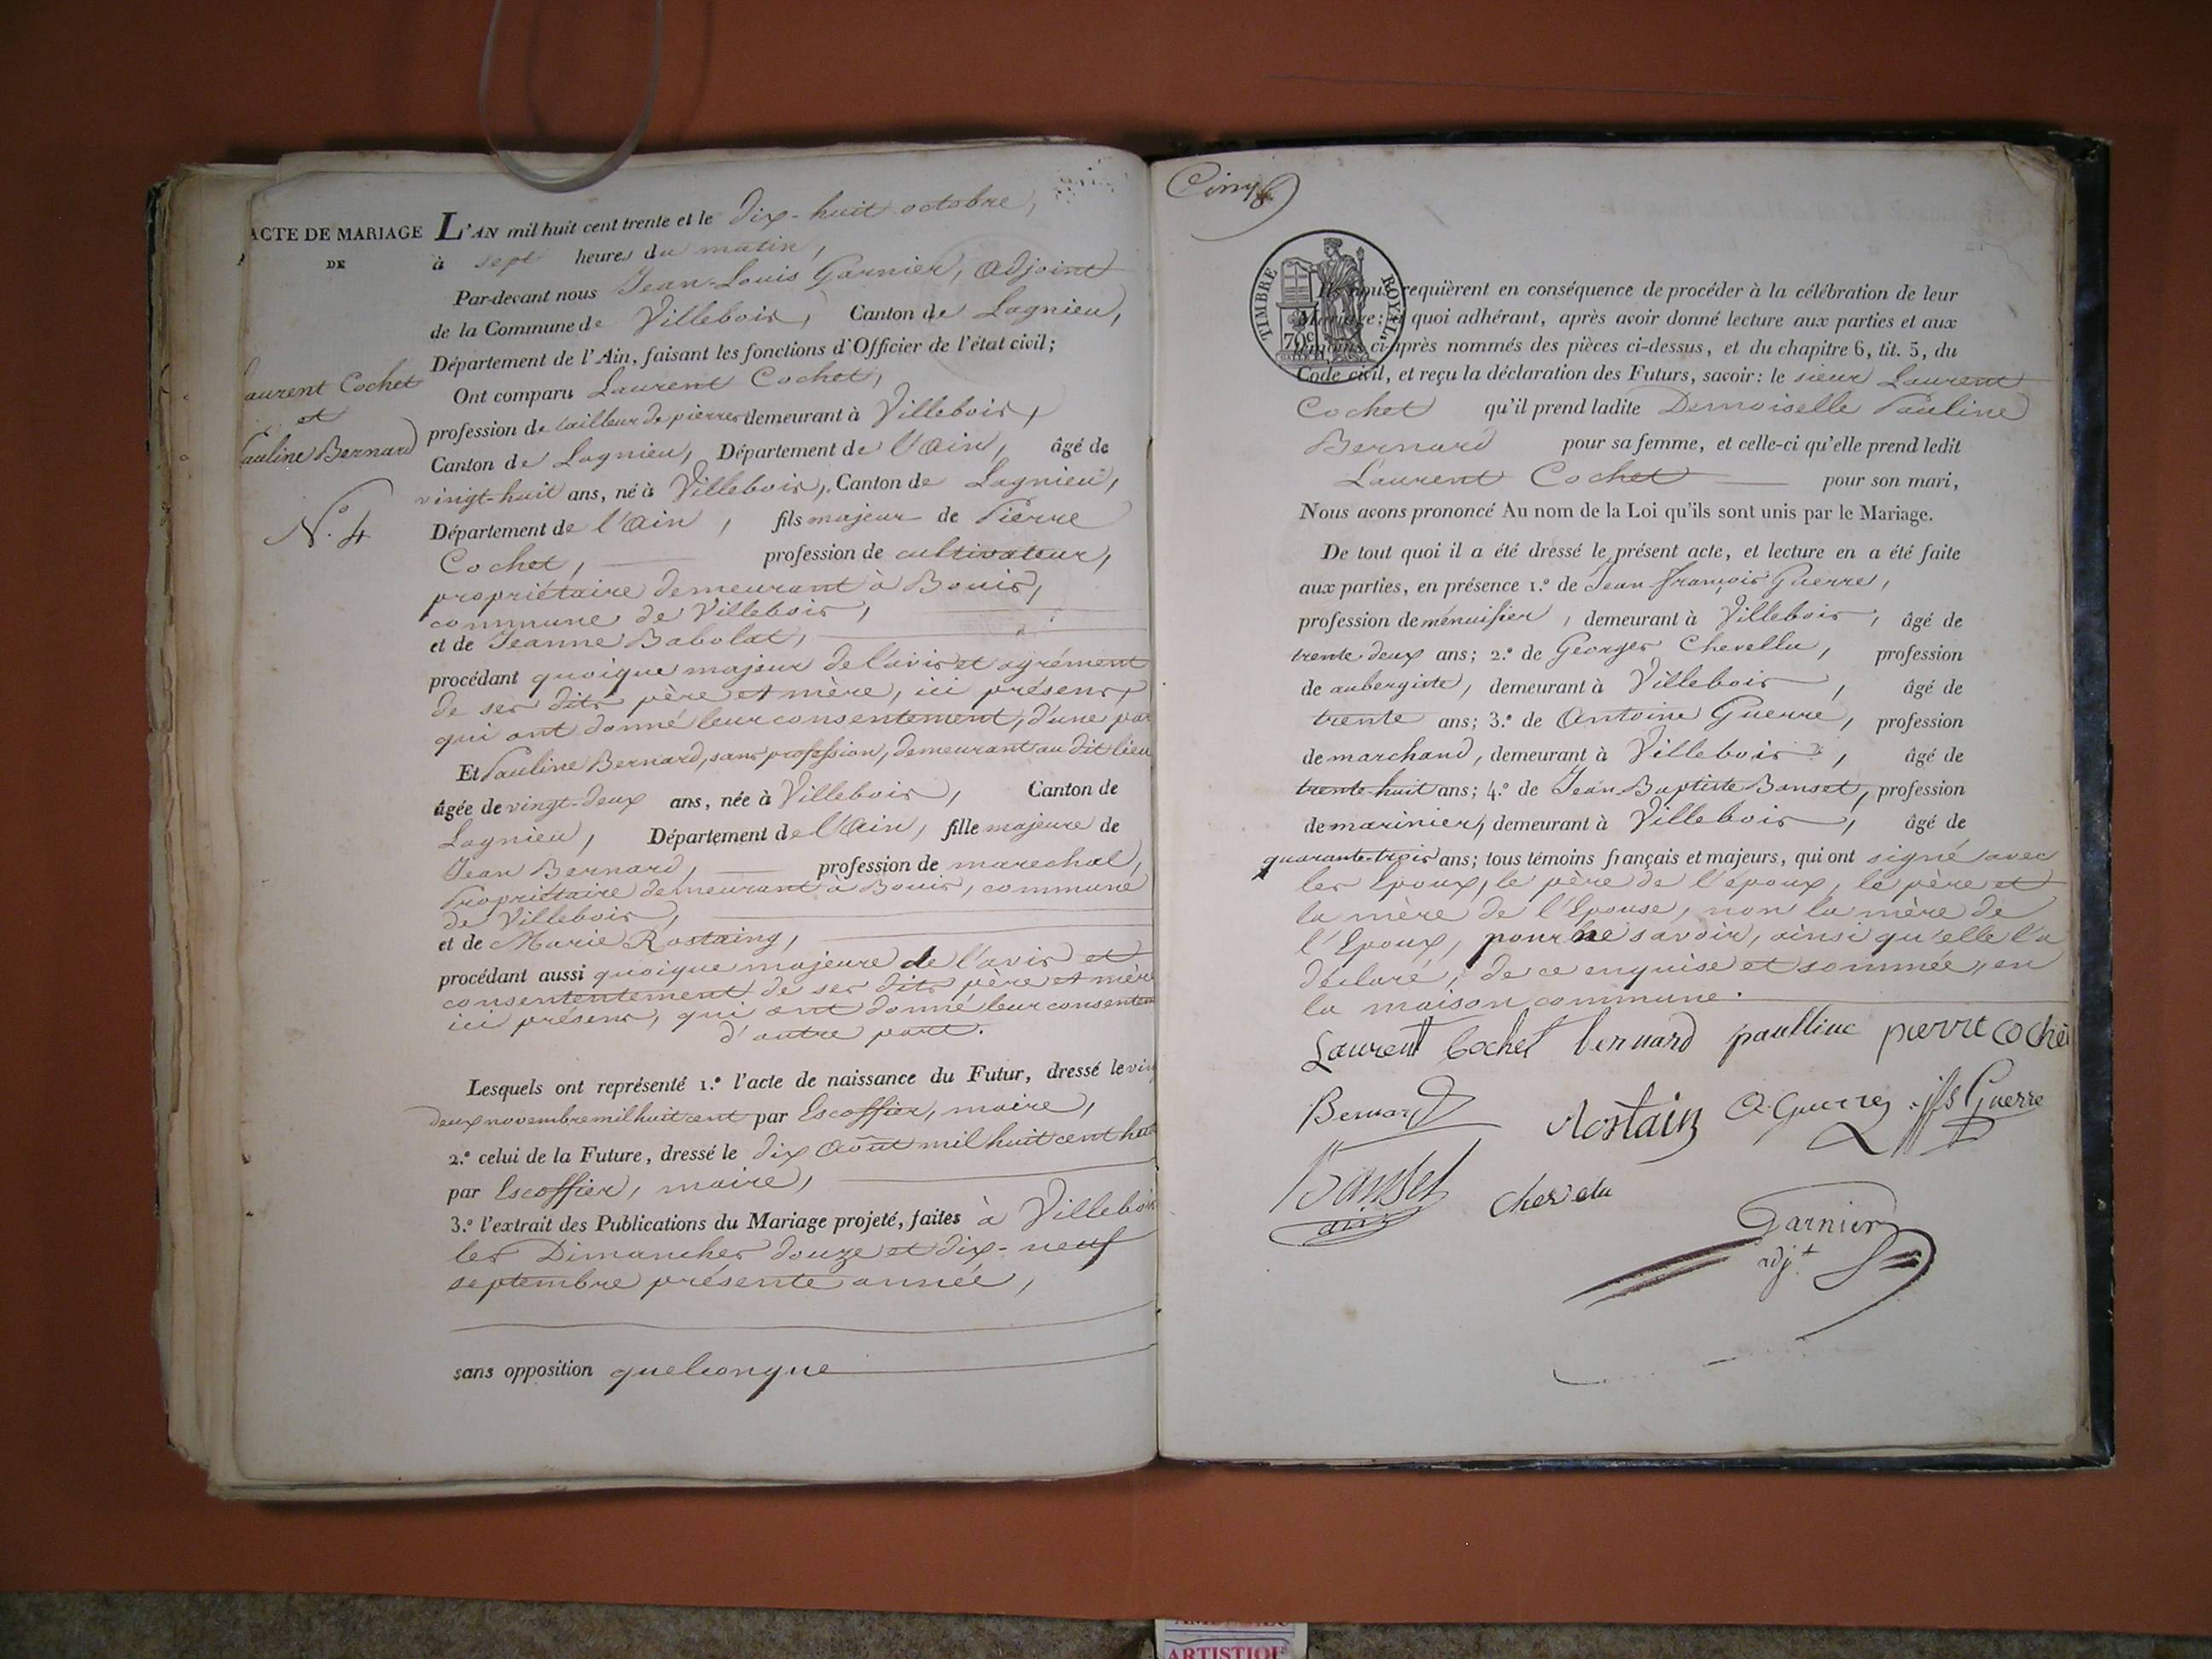 ACTE DE MARIAGE
DE
aurent Cochet
et
auline Bernard
N.o 4
L'AN mil huit cent trente et le dix-huit octobre,
à sept heures du matin,
Par-devant nous Jean-Louis Garnier, adjoint
de la Commune de Villebois, Canton de Lagnieu,
Département de l'Ain, faisant les fonctions d'Officier de l'état civil;
Ont comparu Laurent Cochet,
profession de tailleur de pierres demeurant à Villebois,
Canton de Lagnieu, Département de l'Ain, âgé de
vingt-huit ans, né à Villebois, Canton de Lagnieu,
Département de l'Ain, fils majeur de Pierre
Cochet, profession de cultivateur,
propriétaire demeurant à Bouis,
commune de Villebois,
et de Jeanne Babolat,
procédant quoique majeur de l'avis et agrément
de ses dits père et mère, ici présens,
qui ont donné leur consentement, d'une par
Et Pauline Bernard, sans profession, demeurant au dit lieu
âgée de vingt-deux ans, née à Villebois, Canton de
Lagnieu, Département de l'Ain, fille majeure de
Jean Bernard, profession de marechal,
Propriétaire demeurant à Bouis, commune
de Villebois,
et de Marie Rostaing,
procédant aussi quoique majeure de l'avis et
consententement de ses dits père et mère
ici présens, qui ont donné leur consentem
d'autre part.
Lesquels ont représenté 1.o l'acte de naissance du Futur, dressé le vin
deux novembre mil huit cent par Escoffier, maire,
2.o celui de la Future, dressé le dix août mil huit cent huit
par Escoffier, maire,
3.o l'extrait des Publications du Mariage projeté, faites à Villebois
les Dimanches douze et dix-neuf
septembre présente année,
sans opposition quelconque
Cinq
TIMBRE ROYAL
70c
Ils nous requièrent en conséquence de procéder à la célébration de leur
Mariage; à quoi adhérant, après avoir donné lecture aux parties et aux
témoins ci-après nommés des pièces ci-dessus, et du chapitre 6, tit. 5, du
Code civil, et reçu la déclaration des Futurs, savoir: le sieur Laurent
Cochet qu'il prend ladite Demoiselle Pauline
Bernard pour sa femme, et celle-ci qu'elle prend ledit
Laurent Cochet pour son mari,
Nous avons prononcé Au nom de la Loi qu'ils sont unis par le Mariage.
De tout quoi il a été dressé le présent acte, et lecture en a été faite
aux parties, en présence 1.o de Jean françois Guerre,
profession de ménuisier, demeurant à Villebois, âgé de
trente deux ans; 2.o de Georges Chevellu, profession
de aubergiste, demeurant à Villebois, âgé de
trente ans; 3.o de Antoine Guerre, profession
de marchand, demeurant à Villebois, âgé de
trente-huit ans; 4.o de Jean Baptiste Banset, profession
de marinier, demeurant à Villebois, âgé de
quarante-trois ans; tous témoins français et majeurs, qui ont signé avec
les Epoux, le père de l'époux, le père et
la mère de l'Epouse, non la mère de
l'Epoux, pour ne savoir, ainsi qu'elle l'a
déclaré, de ce enquise et sommée, en
la maison commune.
Laurent Cochet bernard paulline pierre coche
Bernard Rostain A. Guerre jfs Guerre
Banset chevelu
Garnier
adj.t
ARTISTIQUE